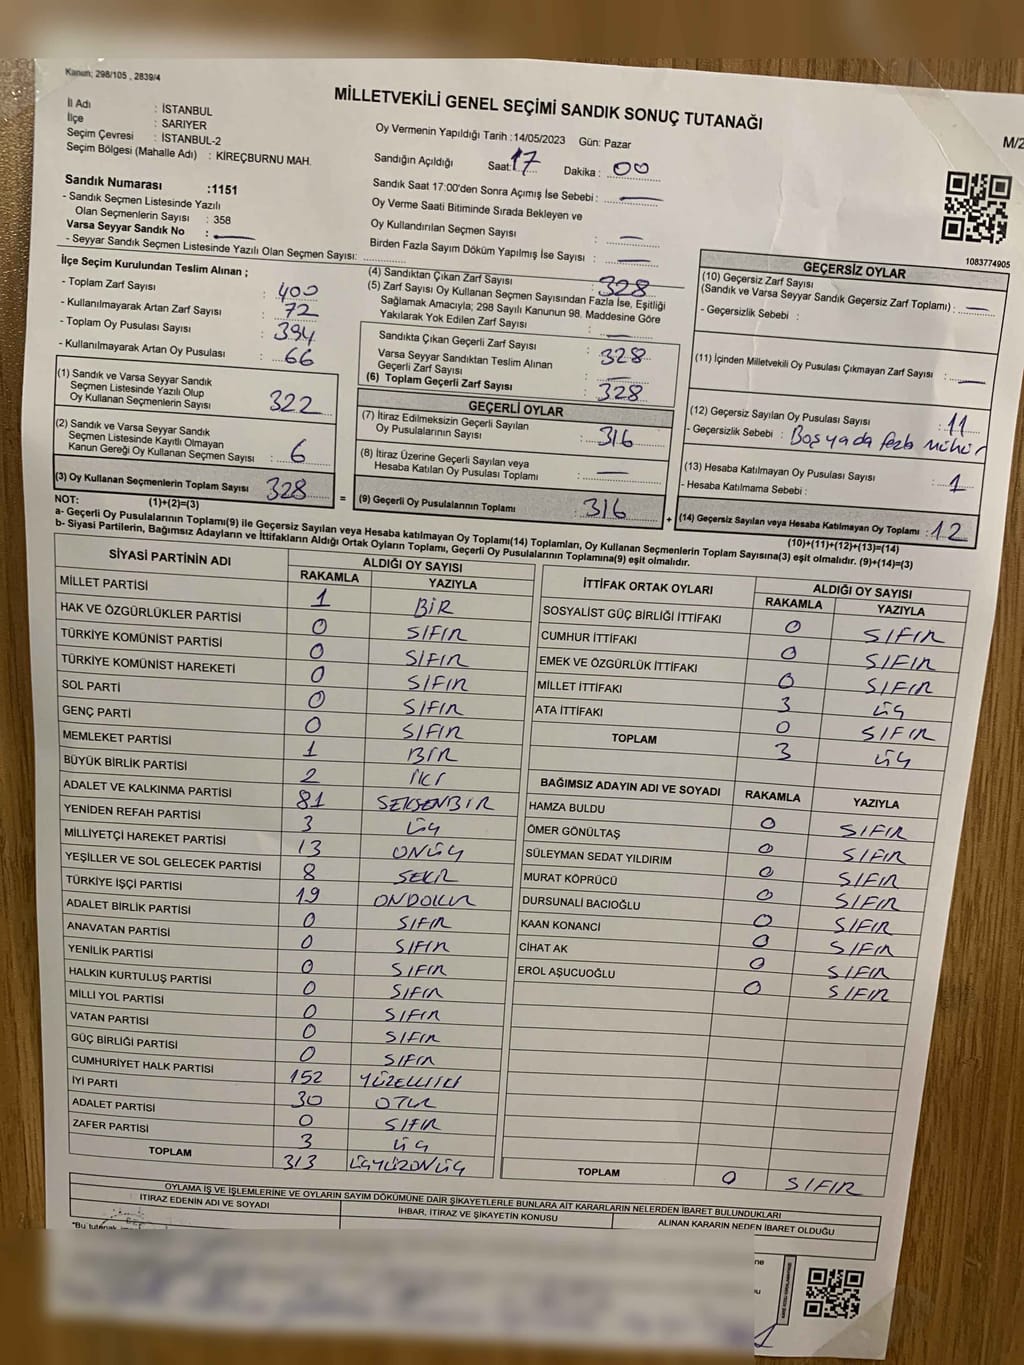 Kanun; 298/105 , 2839/4
MİLLETVEKİLİ GENEL SEÇİMİ SANDIK SONUÇ TUTANAĞI
M/2
İl Adı : İSTANBUL
İlçe : SARIYER
Seçim Çevresi : İSTANBUL-2
Seçim Bölgesi (Mahalle Adı) : KİREÇBURNU MAH.
Sandık Numarası :1151
- Sandık Seçmen Listesinde Yazılı
Olan Seçmenlerin Sayısı : 358
Varsa Seyyar Sandık No :
- Seyyar Sandık Seçmen Listesinde Yazılı Olan Seçmen Sayısı:
Oy Vermenin Yapıldığı Tarih :14/05/2023 Gün: Pazar
Sandığın Açıldığı Saat: 17 Dakika : 00
Sandık Saat 17:00'den Sonra Açımış İse Sebebi :
Oy Verme Saati Bitiminde Sırada Bekleyen ve
Oy Kullandırılan Seçmen Sayısı :
Birden Fazla Sayım Döküm Yapılmış İse Sayısı :
1083774905
İlçe Seçim Kurulundan Teslim Alınan ;
- Toplam Zarf Sayısı : 400
- Kullanılmayarak Artan Zarf Sayısı : 72
- Toplam Oy Pusulası Sayısı : 394
- Kullanılmayarak Artan Oy Pusulası : 66
(1) Sandık ve Varsa Seyyar Sandık
Seçmen Listesinde Yazılı Olup
Oy Kullanan Seçmenlerin Sayısı 322
(2) Sandık ve Varsa Seyyar Sandık
Seçmen Listesinde Kayıtlı Olmayan
Kanun Gereği Oy Kullanan Seçmen Sayısı : 6
(3) Oy Kullanan Seçmenlerin Toplam Sayısı 328
(1)+(2)=(3)
(4) Sandıktan Çıkan Zarf Sayısı : 328
(5) Zarf Sayısı Oy Kullanan Seçmen Sayısından Fazla İse, Eşitliği
Sağlamak Amacıyla; 298 Sayılı Kanunun 98. Maddesine Göre
Yakılarak Yok Edilen Zarf Sayısı :
Sandıkta Çıkan Geçerli Zarf Sayısı : 328
Varsa Seyyar Sandıktan Teslim Alınan
Geçerli Zarf Sayısı :
(6) Toplam Geçerli Zarf Sayısı : 328
GEÇERLİ OYLAR
(7) İtiraz Edilmeksizin Geçerli Sayılan
Oy Pusulalarının Sayısı : 316
(8) İtiraz Üzerine Geçerli Sayılan veya
Hesaba Katılan Oy Pusulası Toplamı :
= (9) Geçerli Oy Pusulalarının Toplamı : 316 +
GEÇERSİZ OYLAR
(10) Geçersiz Zarf Sayısı
(Sandık ve Varsa Seyyar Sandık Geçersiz Zarf Toplamı) :
- Geçersizlik Sebebi :
(11) İçinden Milletvekili Oy Pusulası Çıkmayan Zarf Sayısı :
(12) Geçersiz Sayılan Oy Pusulası Sayısı : 11
- Geçersizlik Sebebi : Boş yada fazla mühür
(13) Hesaba Katılmayan Oy Pusulası Sayısı : 1
- Hesaba Katılmama Sebebi :
(14) Geçersiz Sayılan veya Hesaba Katılmayan Oy Toplamı : 12
(10)+(11)+(12)+(13)=(14)
NOT:
a- Geçerli Oy Pusulalarının Toplamı(9) ile Geçersiz Sayılan veya Hesaba katılmayan Oy Toplamı(14) Toplamları, Oy Kullanan Seçmenlerin Toplam Sayısına(3) eşit olmalıdır. (9)+(14)=(3)
b- Siyasi Partilerin, Bağımsız Adayların ve İttifakların Aldığı Ortak Oyların Toplamı, Geçerli Oy Pusulalarının Toplamına(9) eşit olmalıdır.
SİYASİ PARTİNİN ADI ALDIĞI OY SAYISI
RAKAMLA YAZIYLA
MİLLET PARTİSİ 1 BİR
HAK VE ÖZGÜRLÜKLER PARTİSİ 0 SIFIR
TÜRKİYE KOMÜNİST PARTİSİ 0 SIFIR
TÜRKİYE KOMÜNİST HAREKETİ 0 SIFIR
SOL PARTİ 0 SIFIR
GENÇ PARTİ 0 SIFIR
MEMLEKET PARTİSİ 1 BİR
BÜYÜK BİRLİK PARTİSİ 2 İKİ
ADALET VE KALKINMA PARTİSİ 81 SEKSENBİR
YENİDEN REFAH PARTİSİ 3 ÜÇ
MİLLİYETÇİ HAREKET PARTİSİ 13 ONÜÇ
YEŞİLLER VE SOL GELECEK PARTİSİ 8 SEKİZ
TÜRKİYE İŞÇİ PARTİSİ 19 ONDOKUZ
ADALET BİRLİK PARTİSİ 0 SIFIR
ANAVATAN PARTİSİ 0 SIFIR
YENİLİK PARTİSİ 0 SIFIR
HALKIN KURTULUŞ PARTİSİ 0 SIFIR
MİLLİ YOL PARTİSİ 0 SIFIR
VATAN PARTİSİ 0 SIFIR
GÜÇ BİRLİĞİ PARTİSİ 0 SIFIR
CUMHURİYET HALK PARTİSİ 152 YÜZELLİİKİ
İYİ PARTİ 30 OTUZ
ADALET PARTİSİ 0 SIFIR
ZAFER PARTİSİ 3 ÜÇ
TOPLAM 313 ÜÇYÜZONÜÇ
İTTİFAK ORTAK OYLARI ALDIĞI OY SAYISI
RAKAMLA YAZIYLA
SOSYALİST GÜÇ BİRLİĞİ İTTİFAKI 0 SIFIR
CUMHUR İTTİFAKI 0 SIFIR
EMEK VE ÖZGÜRLÜK İTTİFAKI 0 SIFIR
MİLLET İTTİFAKI 3 ÜÇ
ATA İTTİFAKI 0 SIFIR
TOPLAM 3 ÜÇ
BAĞIMSIZ ADAYIN ADI VE SOYADI RAKAMLA YAZIYLA
HAMZA BULDU 0 SIFIR
ÖMER GÖNÜLTAŞ 0 SIFIR
SÜLEYMAN SEDAT YILDIRIM 0 SIFIR
MURAT KÖPRÜCÜ 0 SIFIR
DURSUNALİ BACIOĞLU 0 SIFIR
KAAN KONANCİ 0 SIFIR
CİHAT AK 0 SIFIR
EROL AŞUCUOĞLU 0 SIFIR
TOPLAM 0 SIFIR
OYLAMA İŞ VE İŞLEMLERİNE VE OYLARIN SAYIM DÖKÜMÜNE DAİR ŞİKAYETLERLE BUNLARA AİT KARARLARIN NELERDEN İBARET BULUNDUKLARI
İTİRAZ EDENİN ADI VE SOYADI İHBAR, İTİRAZ VE ŞİKAYETİN KONUSU ALINAN KARARIN NEDEN İBARET OLDUĞU
"Bu tutanak